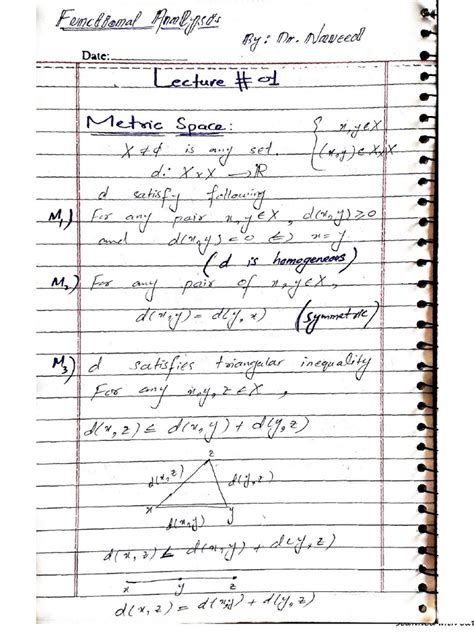 Functional Analysis
By: Dr. Naveed
Date:
Lecture # 01
Metric Space:
X ≠ ϕ is any set. { x, y ∈ X
d: X × X → ℝ (x, y) ∈ X×X
d satisfy following
M₁) For any pair x, y ∈ X, d(x, y) ≥ 0
and d(x, y) = 0 ⇔ x = y
(d is homogeneous)
M₂) For any pair of x, y ∈ X,
d(x, y) = d(y, x) (symmetric)
M₃) d satisfies triangular inequality
For any x, y, z ∈ X,
d(x, z) ≤ d(x, y) + d(y, z)
z
d(x, z) d(y, z)
x y
d(x, y)
d(x, z) ≤ d(x, y) + d(y, z)
x y z
d(x, z) = d(x, y) + d(y, z)